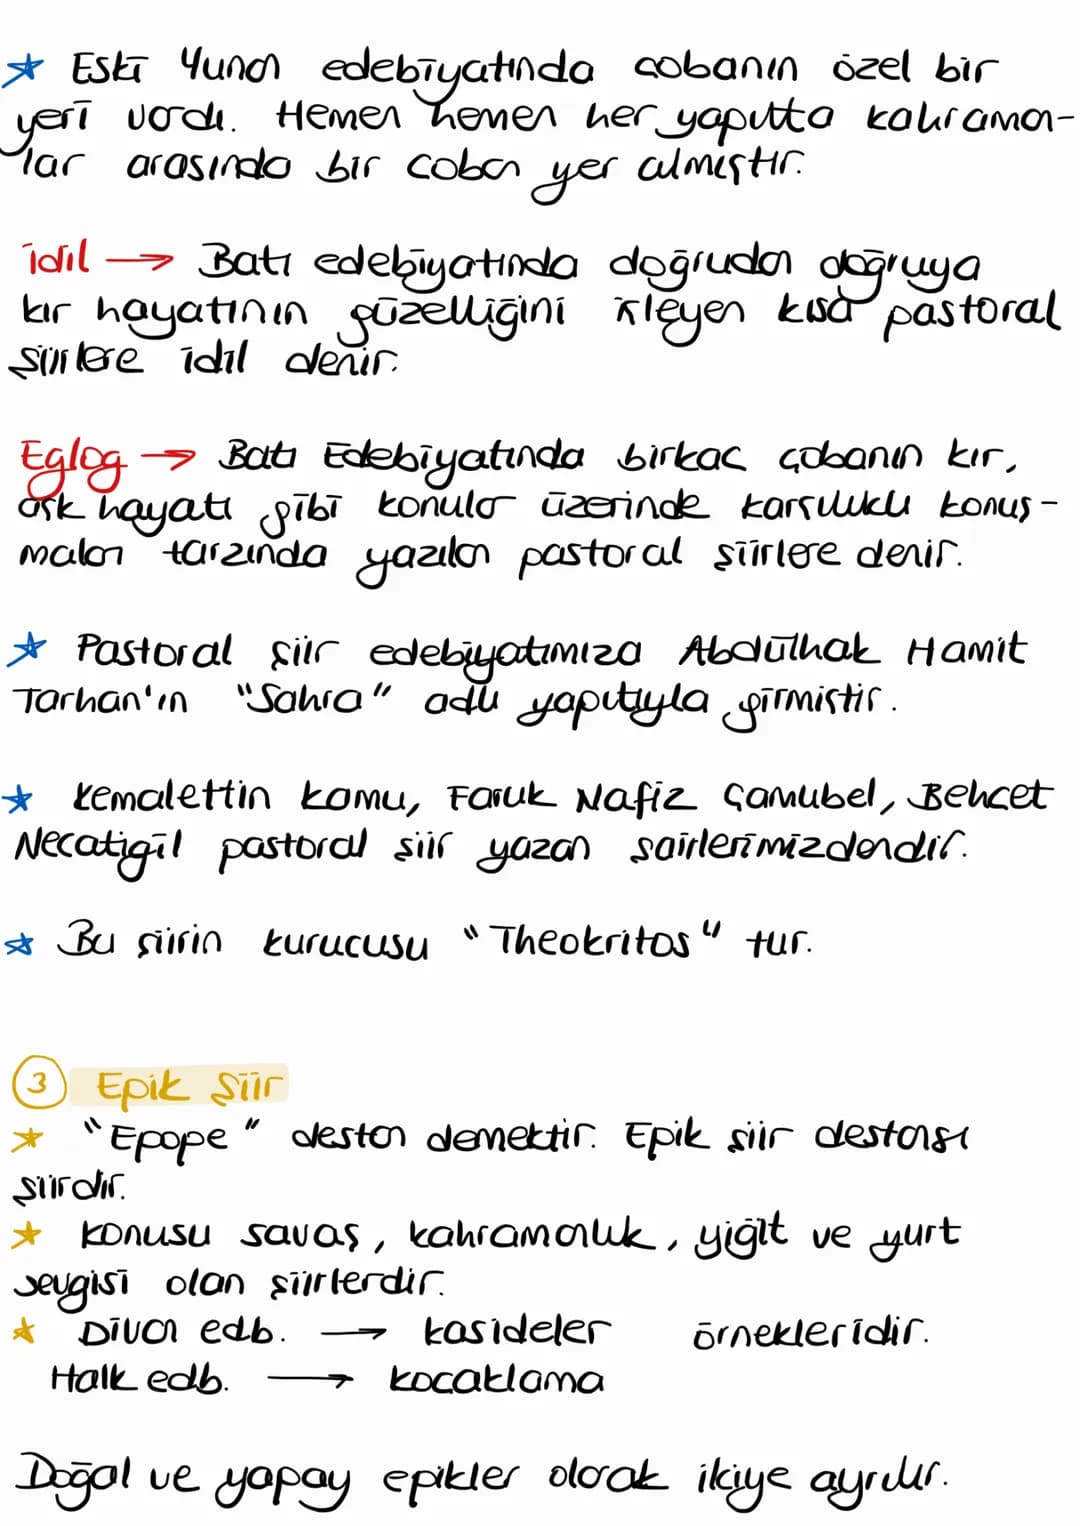 Eski Yunan edebiyatında çobanın özel bir
yeri vardı. Hemen hemen her yapıtta kahraman-
lar arasında bir çoban yer almıştır.
İdil → Batı edebiyatında doğrudan doğruya
kır hayatının güzelliğini işleyen kısa pastoral
şiirlere idil denir.
Eglog → Batı Edebiyatında birkaç çobanın kır,
aşk hayatı gibi konular üzerinde karşılıklı konuş-
maları tarzında yazılan pastoral şiirlere denir.
Pastoral şiir edebiyatımıza Abdülhak Hamit
Tarhan'ın "Sahra" adlı yapıtıyla girmiştir.
Kemalettin Kamu, Faruk Nafiz Çamlıbel, Behçet
Necatigil pastoral şiir yazan şairlerimizdendir.
Bu şiirin kurucusu "Theokritos" tur.
3 Epik Şiir
"Epope" destan demektir. Epik şiir destansı
şiirdir.
Konusu savaş, kahramanlık, yiğit ve yurt
sevgisi olan şiirlerdir.
Divan edb. → kasideler örnekleridir.
Halk edb. → koçaklama
Doğal ve yapay epikler olarak ikiye ayrılır.